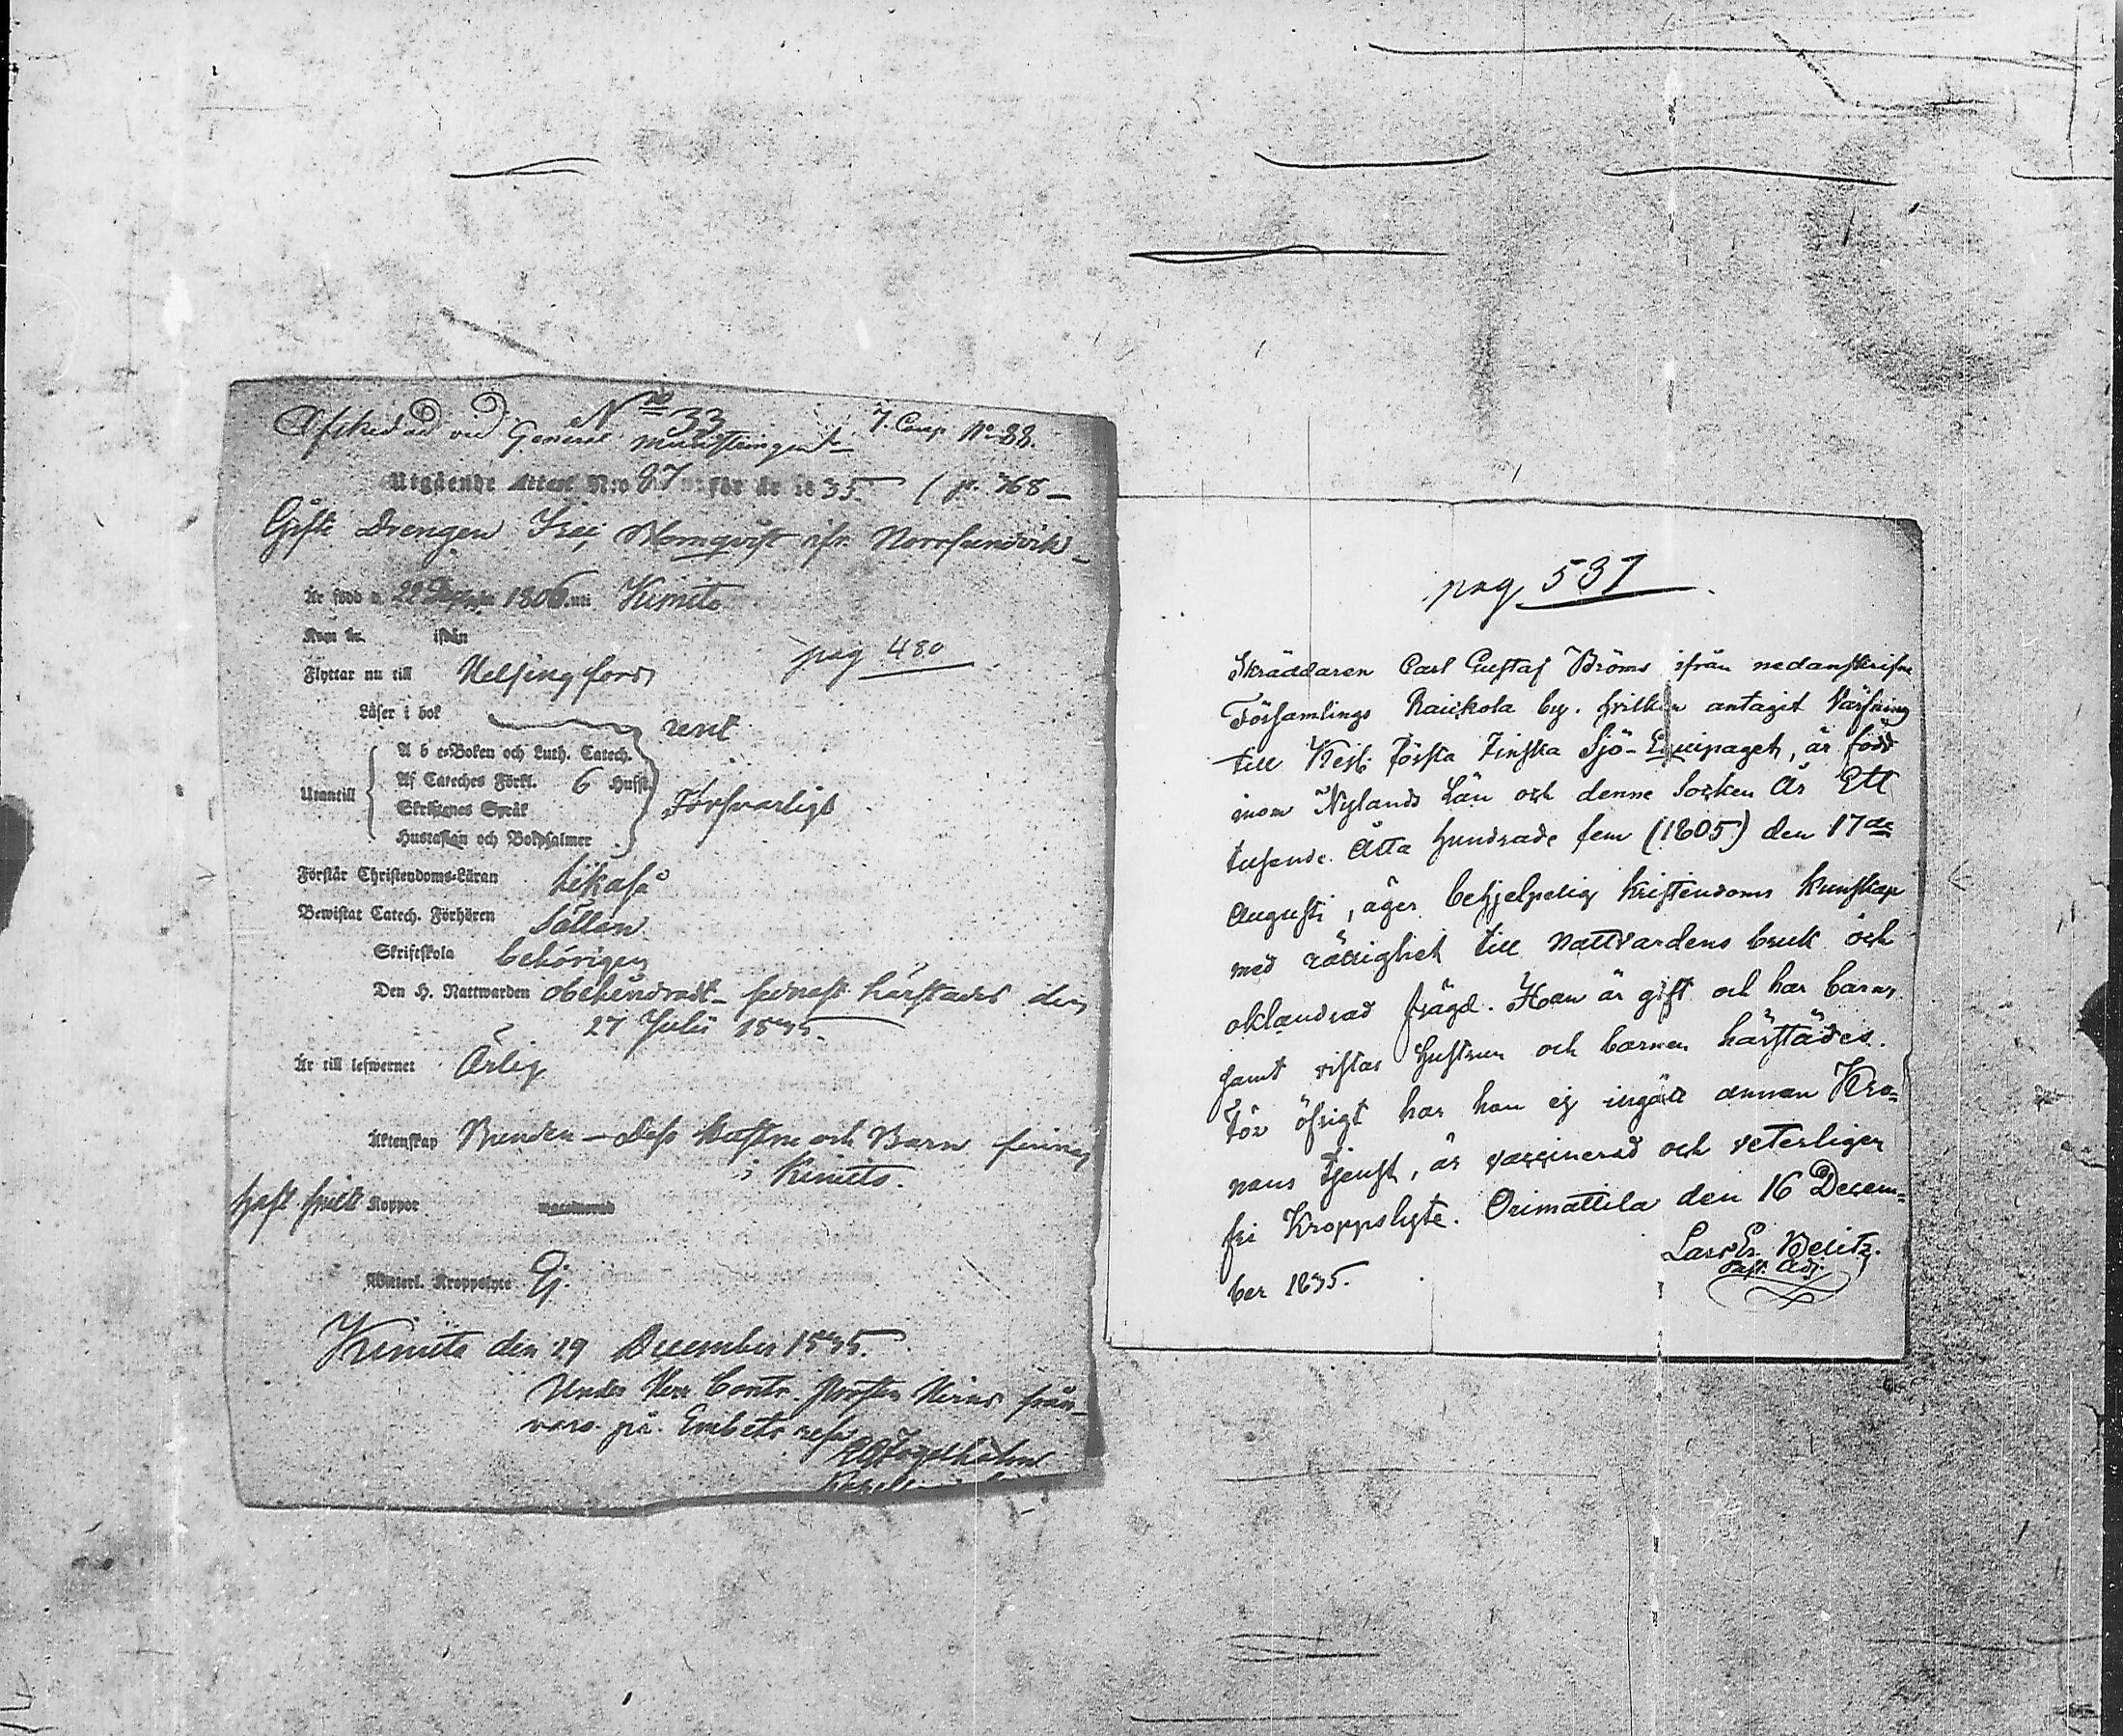 No 33
Afskedad vid General Mönstringen
7. Comp No 88.
Utgående Attest N:o 87 för år 1835. (p. 768
Gifte Drengen Frej Holmqvist ifr. Norrsundvik
Är född d. 22 1806 uti Kimito
Kom År ifrån
Flyttar nu till Helsingfors
pag 480
Läser i bok rent
Utantill
A b c-Boken och Luth. Catech.
Af Cateches Förkl. 6 Hufst.
Skriftenes Språk
Hustaflan och Botpsalmer
Försvarligt
Förstår Christendoms-Läran likaså
Bewistat Catech. Förhören Sällan
Skriftskola behörigen
Den H. Nattwarden obehindradt sednast härstädes den
27 Julii 1835.
Är till lefwernet Ärlig
Äktenskap Bunden – Dess Hustru och Barn finnes
i Kimito.
Haft Koppor waccinerad
Witterl. Kroppslyte Ej.
Kimito den 29 December 1835.
Under Herr Contr. Prosten från-
varo på Embets resa

pag 531
Skräddaren Carl Gustaf Bröms ifrån nedanskrifne
Församlings Raikola by. hvilken antagit Värfning
till Kejs. Första Finska Sjö-Equipaget, är född
inom Nylands Län och denne Socken År Ett
tusende Åtta hundrade fem (1805) den 17de
Augusti, äger behjelpelig kristendoms kunskap
med rättighet till Nattvardens bruk och
oklandrad frägd. Han är gift och har barn,
samt vistas hustrun och barnen härstädes.
För öfrigt har han ej ingått annan Kro-
nans tjenst, är vaccinerad och veterligen
fri Kroppslyte. Orimattila den 16 Decem-
ber 1835.
Lars Er. Belitz.
Past. Adj.